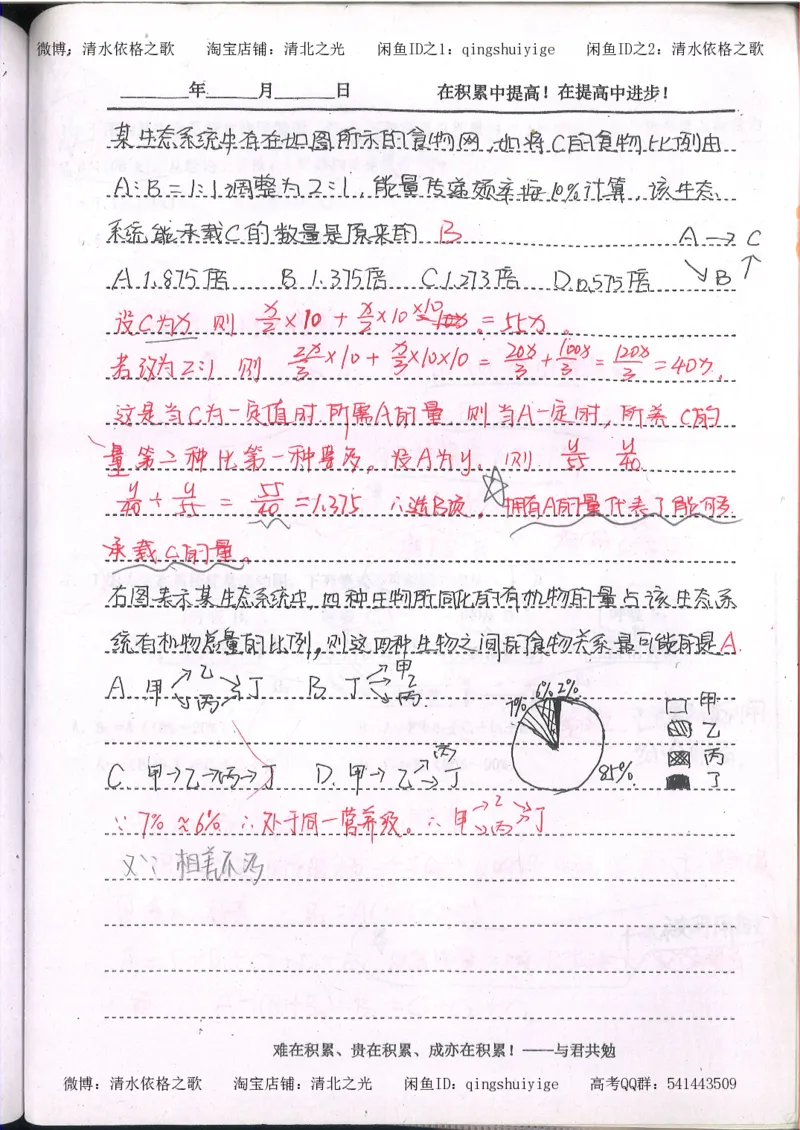 微博：清水依格之歌 淘宝店铺：清北之光 闲鱼ID之1：qingshuiyige 闲鱼ID之2：清水依格之歌
____年____月____日 在积累中提高！在提高中进步！
某生态系统中存在如图所示的食物网，如将C的食物比例由
A:B=1:1调整为2:1，能量传递频率按10%计算，该生态
系统能承载C的数量是原来的 B
A→C
↘B↗
A.1.875倍 B.1.375倍 C.1.273倍 D.0.575倍
设C为x 则 x/2×10+x/2×10×10=55x
若改为2:1 则 2x/3×10+x/3×10×10=20x/3+100x/3=120x/3=40x,
这是当C为一定值时 所需A的量 则当A一定时，所养C的
量第二种比第一种要多。设A为y，则 y/55 y/40
y/40÷y/55=55/40=1.375 ∴选B项。☆拥有A的量代表了能够
承载C的量。
右图表示某生态系统中，四种生物所同化的有机物的量占该生态系
统有机物总量的比例，则这四种生物之间的食物关系最可能的是A.
A.甲↗乙↘丁 B.丁→甲
↘丙↗ →乙
→丙
7% 6% 2%
85%
甲
乙
丙
丁
C.甲→乙→丙→丁 D.甲→乙→丁
↗丙
∵7%≈6% ∴处于同一营养级。∴甲→乙→丁
↘丙↗
又∵相差不
难在积累、贵在积累、成亦在积累！——与君共勉
微博：清水依格之歌 淘宝店铺：清北之光 闲鱼ID：qingshuiyige 高考QQ群：541443509